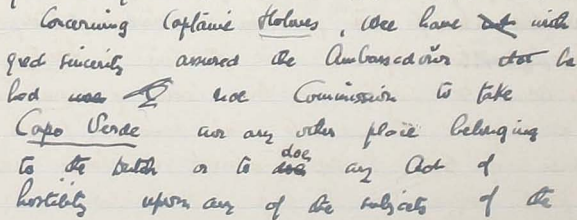 Concerning Captaine Holmes, wee have with
gred sincerity assured the Ambassadour that he
had noe Commission to take
Capo Verde nor any other place belonging
to the Dutch or to doe any Act of
hostility upon any of the subjects of the